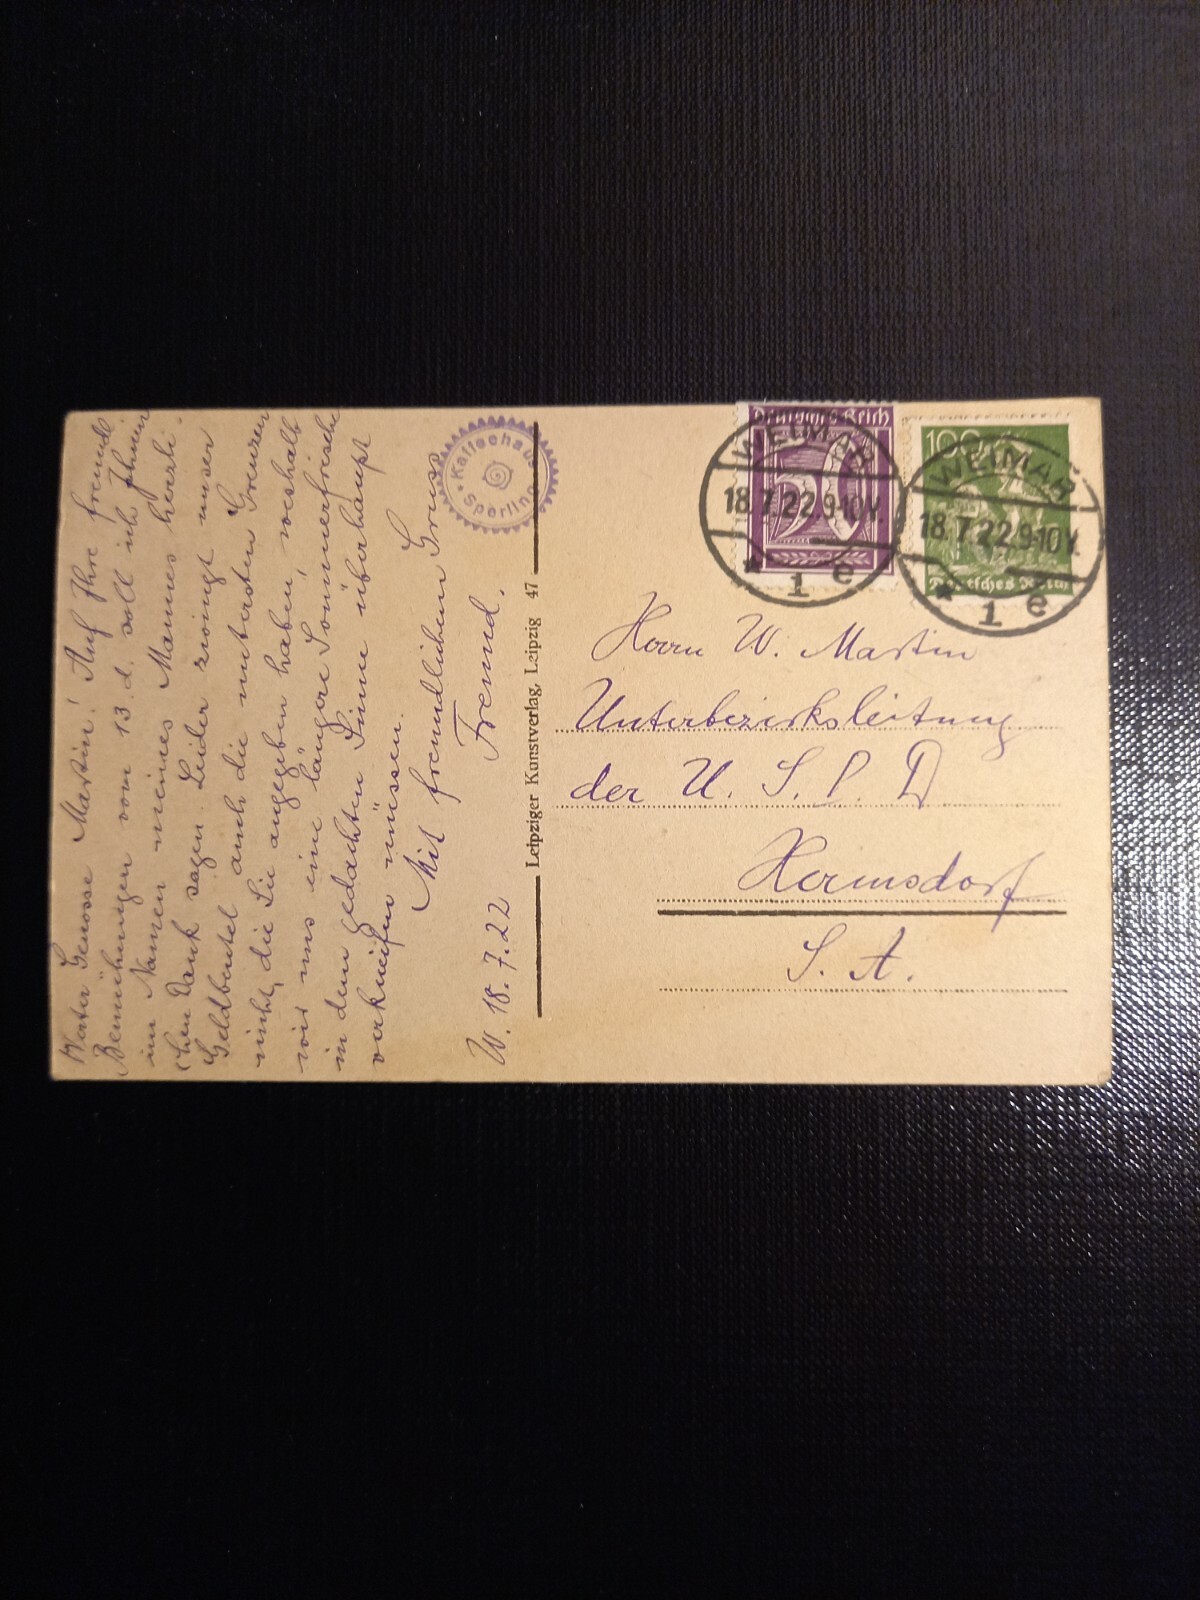 Werter Genosse Martin! Auf Ihre freundl
Bemühungen vom 13. d. soll ich Ihnen
im Namen meines Mannes herzli-
chen Dank sagen. Leider zwingt unser
Geldbeutel auch die untersten Grenzen
nicht, die Sie angegeben haben, weshalb
wir uns eine längere Sommerfrische
in dem gedachten Sinne überhaupt
verkneifen müssen.
Mit freundlichem Gruss
Fremd.
W. 18.7.22
Kaffeehaus
Sperling
Leipziger Kunstverlag, Leipzig 47
Deutsches Reich
50
WEIMAR
18.7.22.9-10V.
* 1 e
100
Deutsches Reich
WEIMAR
18.7.22.9-10V.
* 1 e
Herrn W. Martin
Unterbezirksleitung
der U. S. P. D
Hermsdorf
S. A.